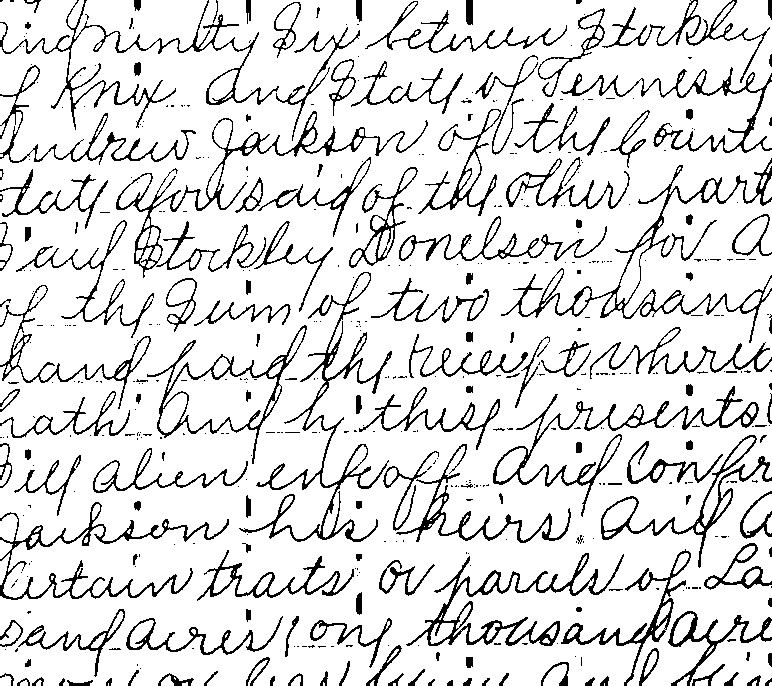 and ninety Six between Stockley
of Knox and State of Tennessee
Andrew Jackson of the Counti
State aforesaid of the other part
Said Stockley Donelson for a
of the Sum of two thousand
hand paid the receipt where
hath and by these presents
Sell alien enfeoff and Confir
Jackson his heirs and a
Certain tracts or parcels of La
sand acres, one thousand acre
more or less being and bein